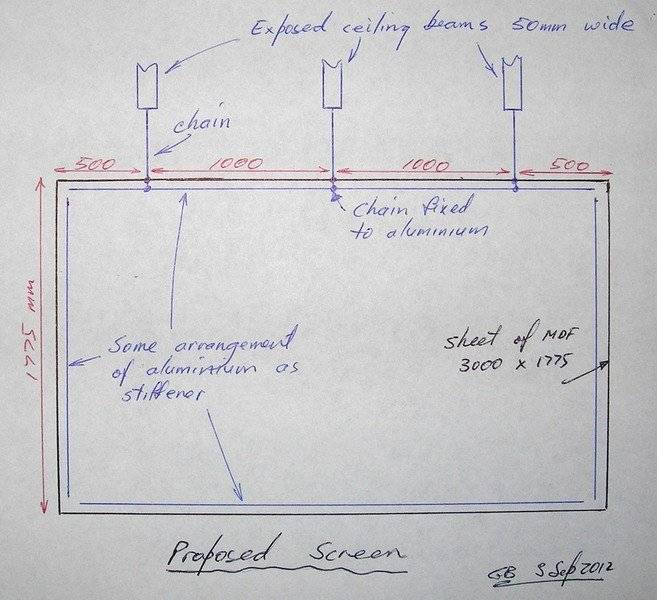 Exposed ceiling beams 50mm wide
chain
500
1000
1000
500
Chain fixed
to aluminium
1775 mm
Some arrangement
of aluminium as
stiffener
sheet of MDF
3000 x 1775
Proposed Screen
GB 3 Sep 2012